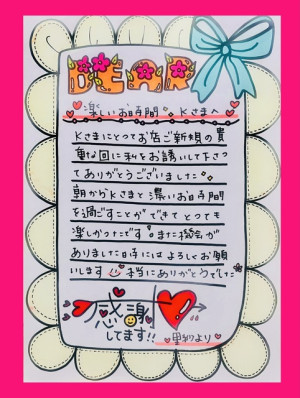 DEAR
楽しいお時間 Kさまへ
Kさまにとってお店ご新規の貴
重な回に私をお誘いして下さっ
てありがとうございました
朝からKさまと濃いお時間
を過ごすことができてとっても
楽しかったです!また機会が
ありました時にはよろしくお願
いします 本当にありがとうでした
感謝
してます!!
より